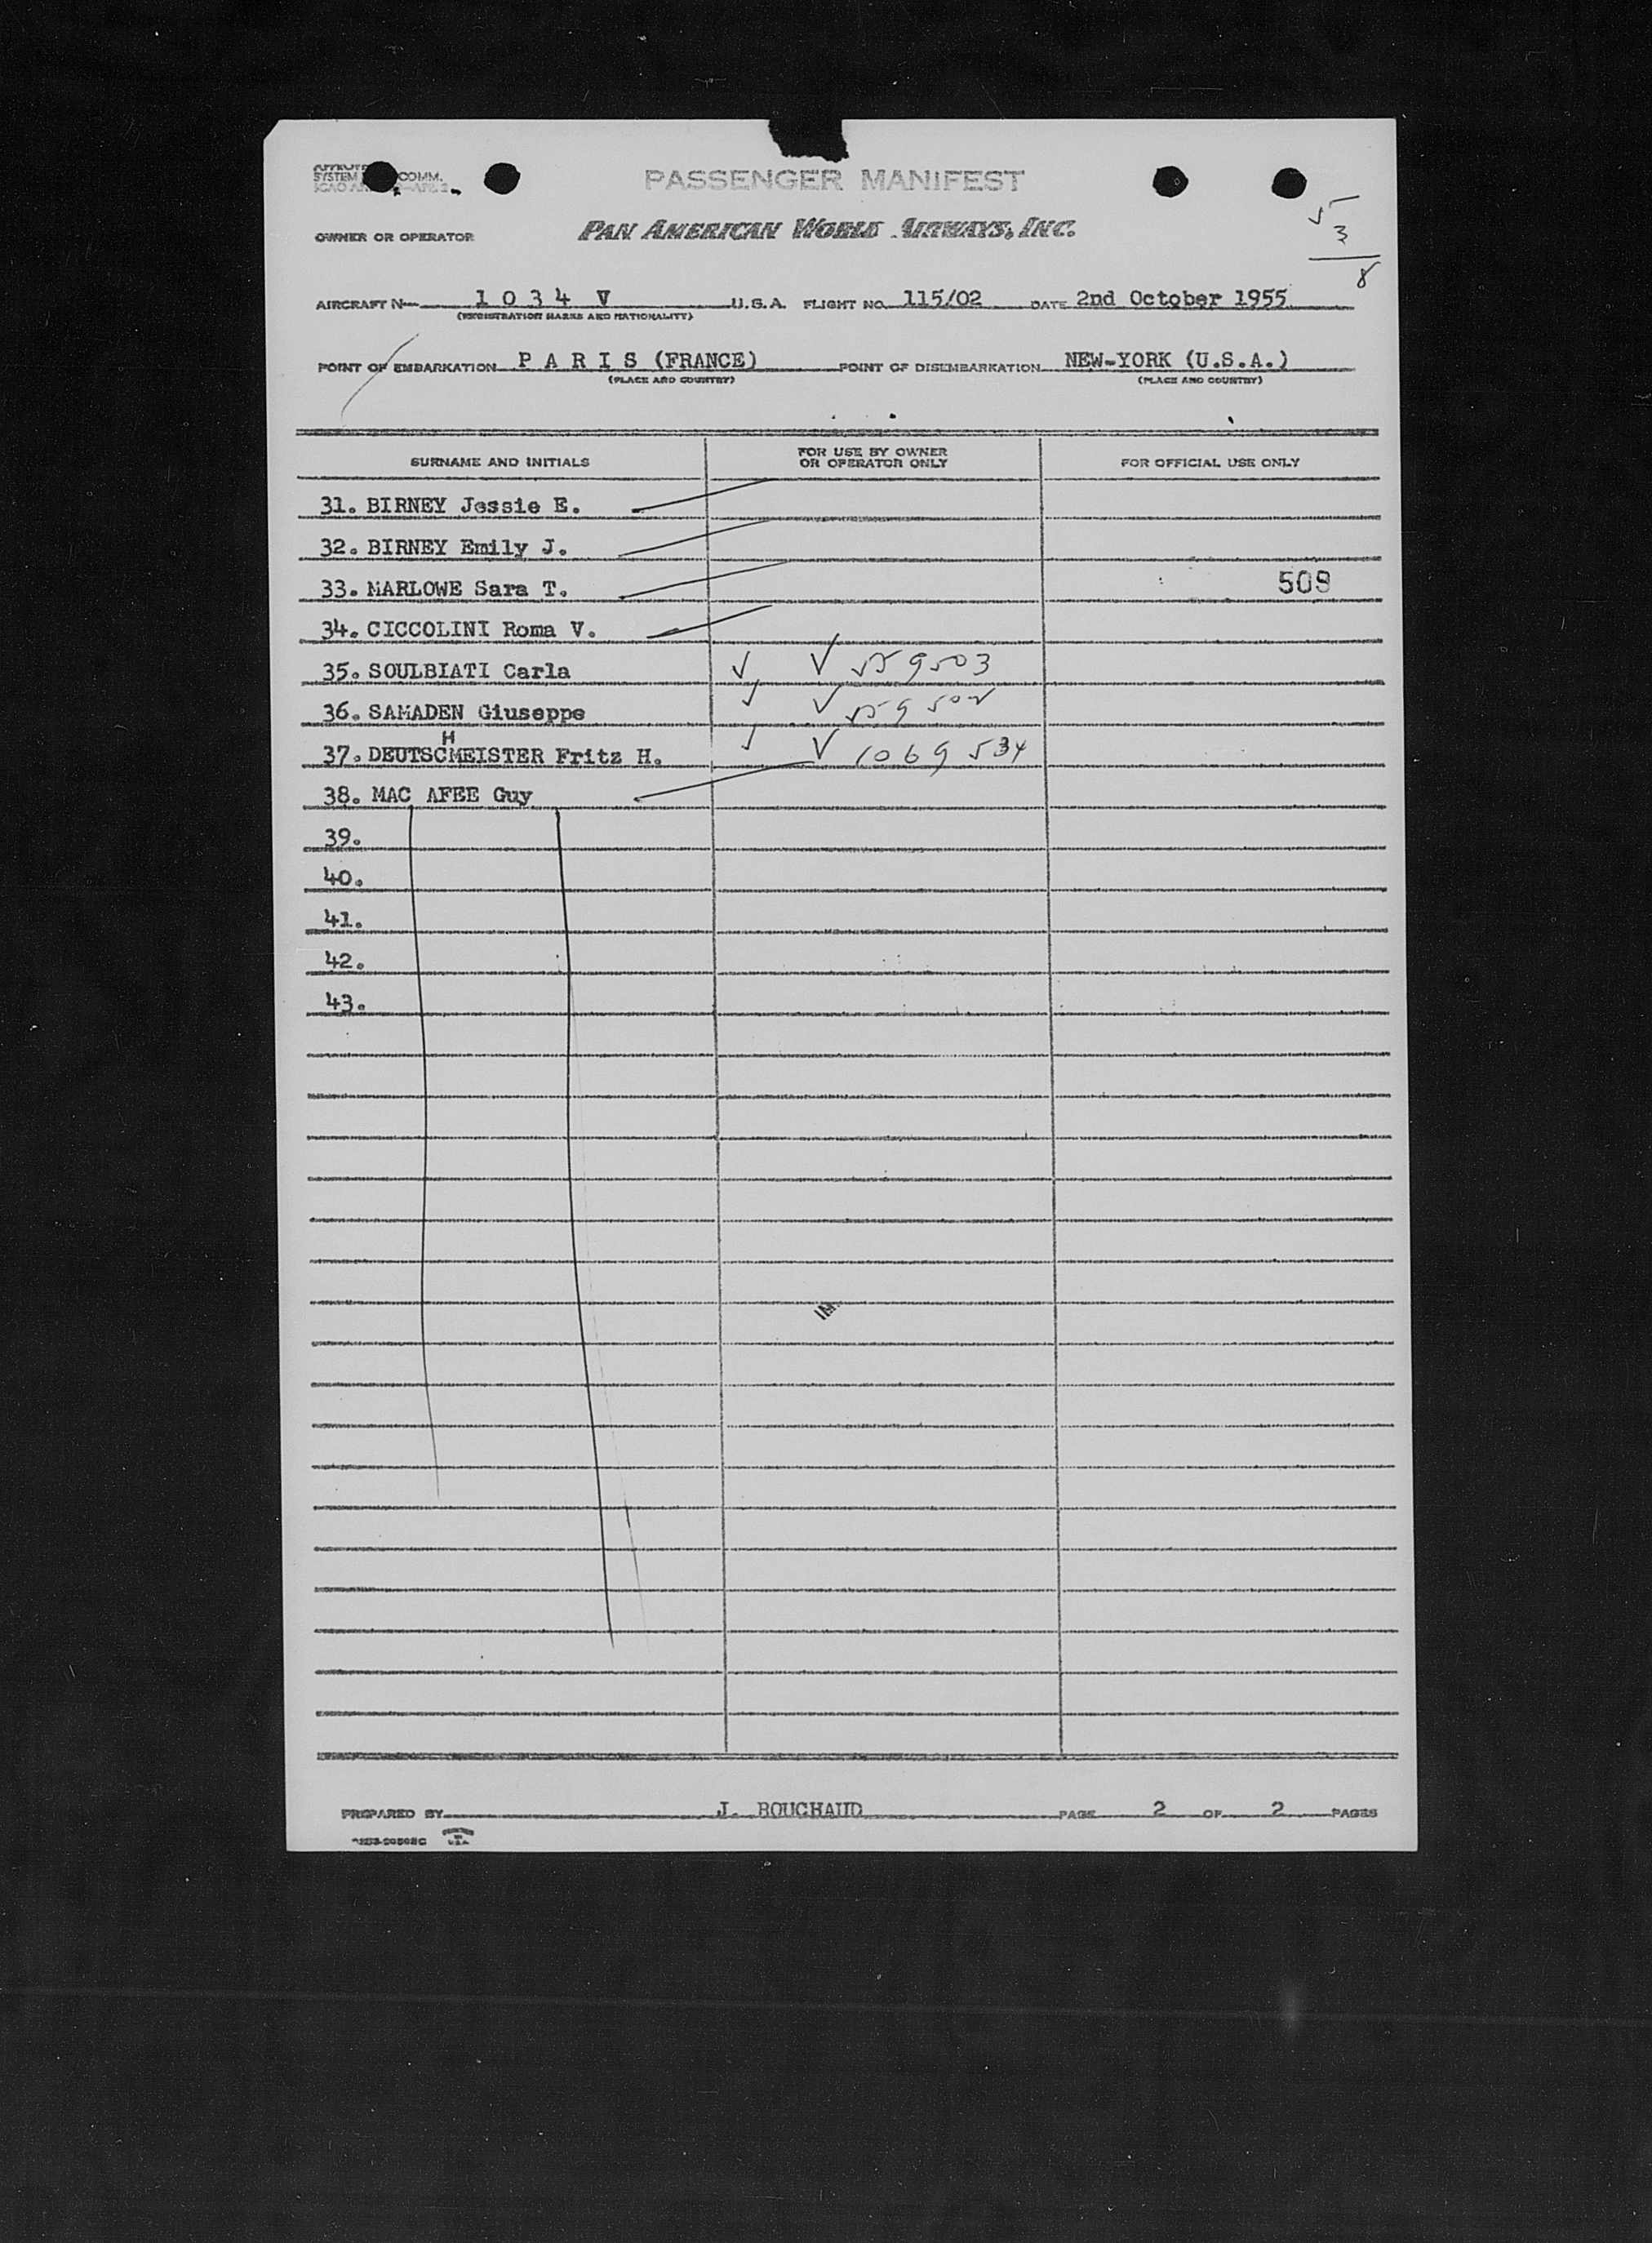 SYSTEM COMM.
PASSENGER MANIFEST
OWNER OR OPERATOR PAN AMERICAN WORLD AIRWAYS, INC.
5
3
8
AIRCRAFT No 1 0 3 4 V U.S.A. FLIGHT NO. 115/02 DATE 2nd October 1955
(REGISTRATION MARKS AND NATIONALITY)
POINT OF EMBARKATION P A R I S (FRANCE) POINT OF DISEMBARKATION NEW-YORK (U.S.A.)
(PLACE AND COUNTRY) (PLACE AND COUNTRY)
SURNAME AND INITIALS FOR USE BY OWNER OR OPERATOR ONLY FOR OFFICIAL USE ONLY
31. BIRNEY Jessie E.
32. BIRNEY Emily J.
33. MARLOWE Sara T. 509
34. CICCOLINI Roma V.
35. SOULBIATI Carla ✓ ✓ 559503
36. SAMADEN Giuseppe ✓ ✓ 559502
H
37. DEUTSCMEISTER Fritz H. ✓ ✓ 1069534
38. MAC AFEE Guy
39.
40.
41.
42.
43.
PREPARED BY J. BOUCHAUD PAGE 2 OF 2 PAGES